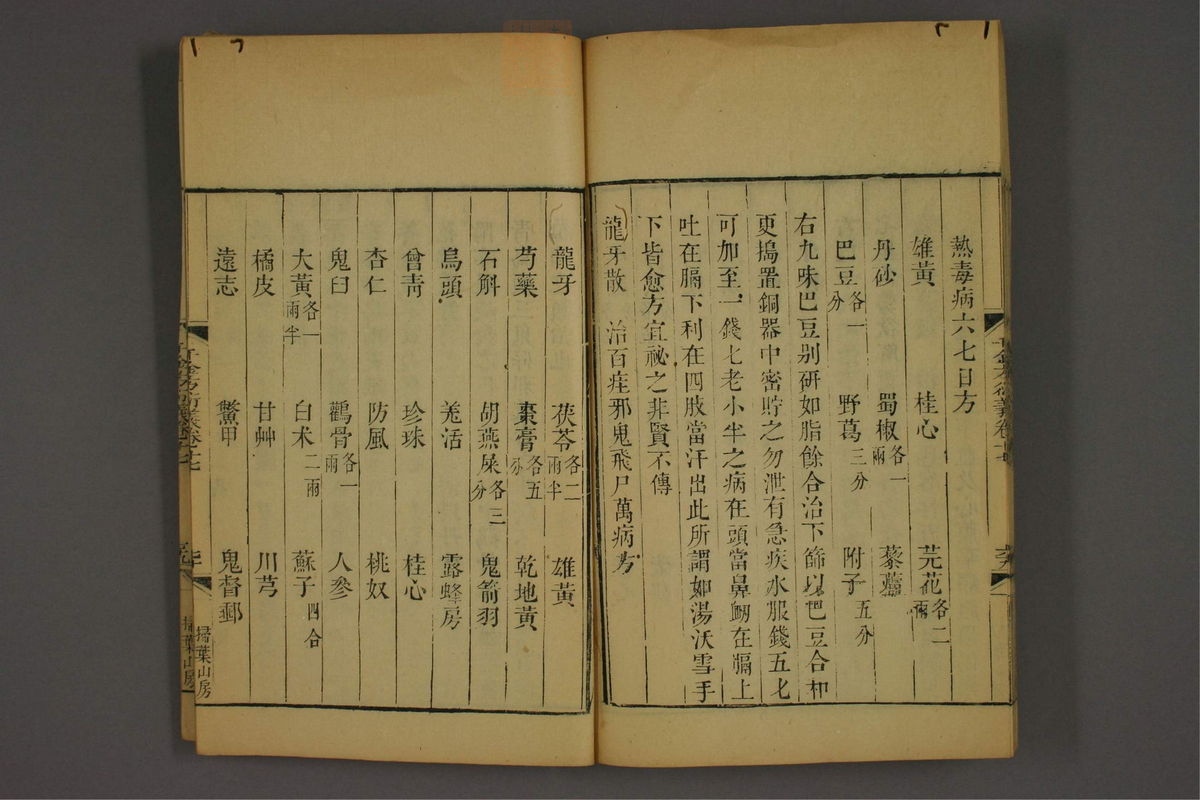 熱毒病六七日方
雄黃 桂心 芫花各二兩
丹砂 蜀椒各一兩 藜蘆
巴豆各一分 野葛三分 附子五分
右九味巴豆别研如脂餘合治下篩以巴豆合和
更搗置銅器中密貯之勿泄有急疾水服錢五匕
可加至一錢匕老小半之病在頭當鼻衂在膈上
吐在膈下利在四肢當汗出此所謂如湯沃雪手
下皆愈方宜祕之非賢不傳
龍牙散 治百疰邪鬼飛尸萬病方
龍牙 茯苓各二兩半 雄黃
芍藥 棗膏各五分 乾地黃
石斛 胡燕屎各三分 鬼箭羽
烏頭 羗活 露蜂房
曾青 珍珠 桂心
杏仁 防風 桃奴
鬼臼 鸛骨各一兩 人參
大黃各一兩半 白术二兩 蘇子四合
橘皮 甘艸 川芎
遠志 鱉甲 鬼督郵
千金方衍義卷十七
掃葉山房